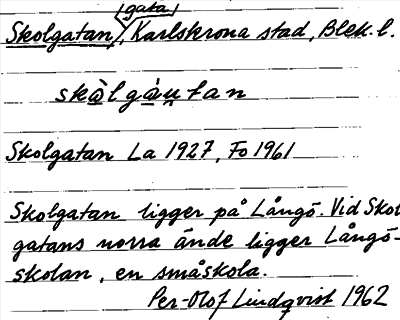 (gata)
Skolgatan, Karlskrona stad, Blek. l.
skòlgàu̯tan
Skolgatan La 1927, Fo 1961
Skolgatan ligger på Långö. Vid Skol
gatans norra ände ligger Långö-
skolan, en småskola.
Per-Olof Lindqvist 1962